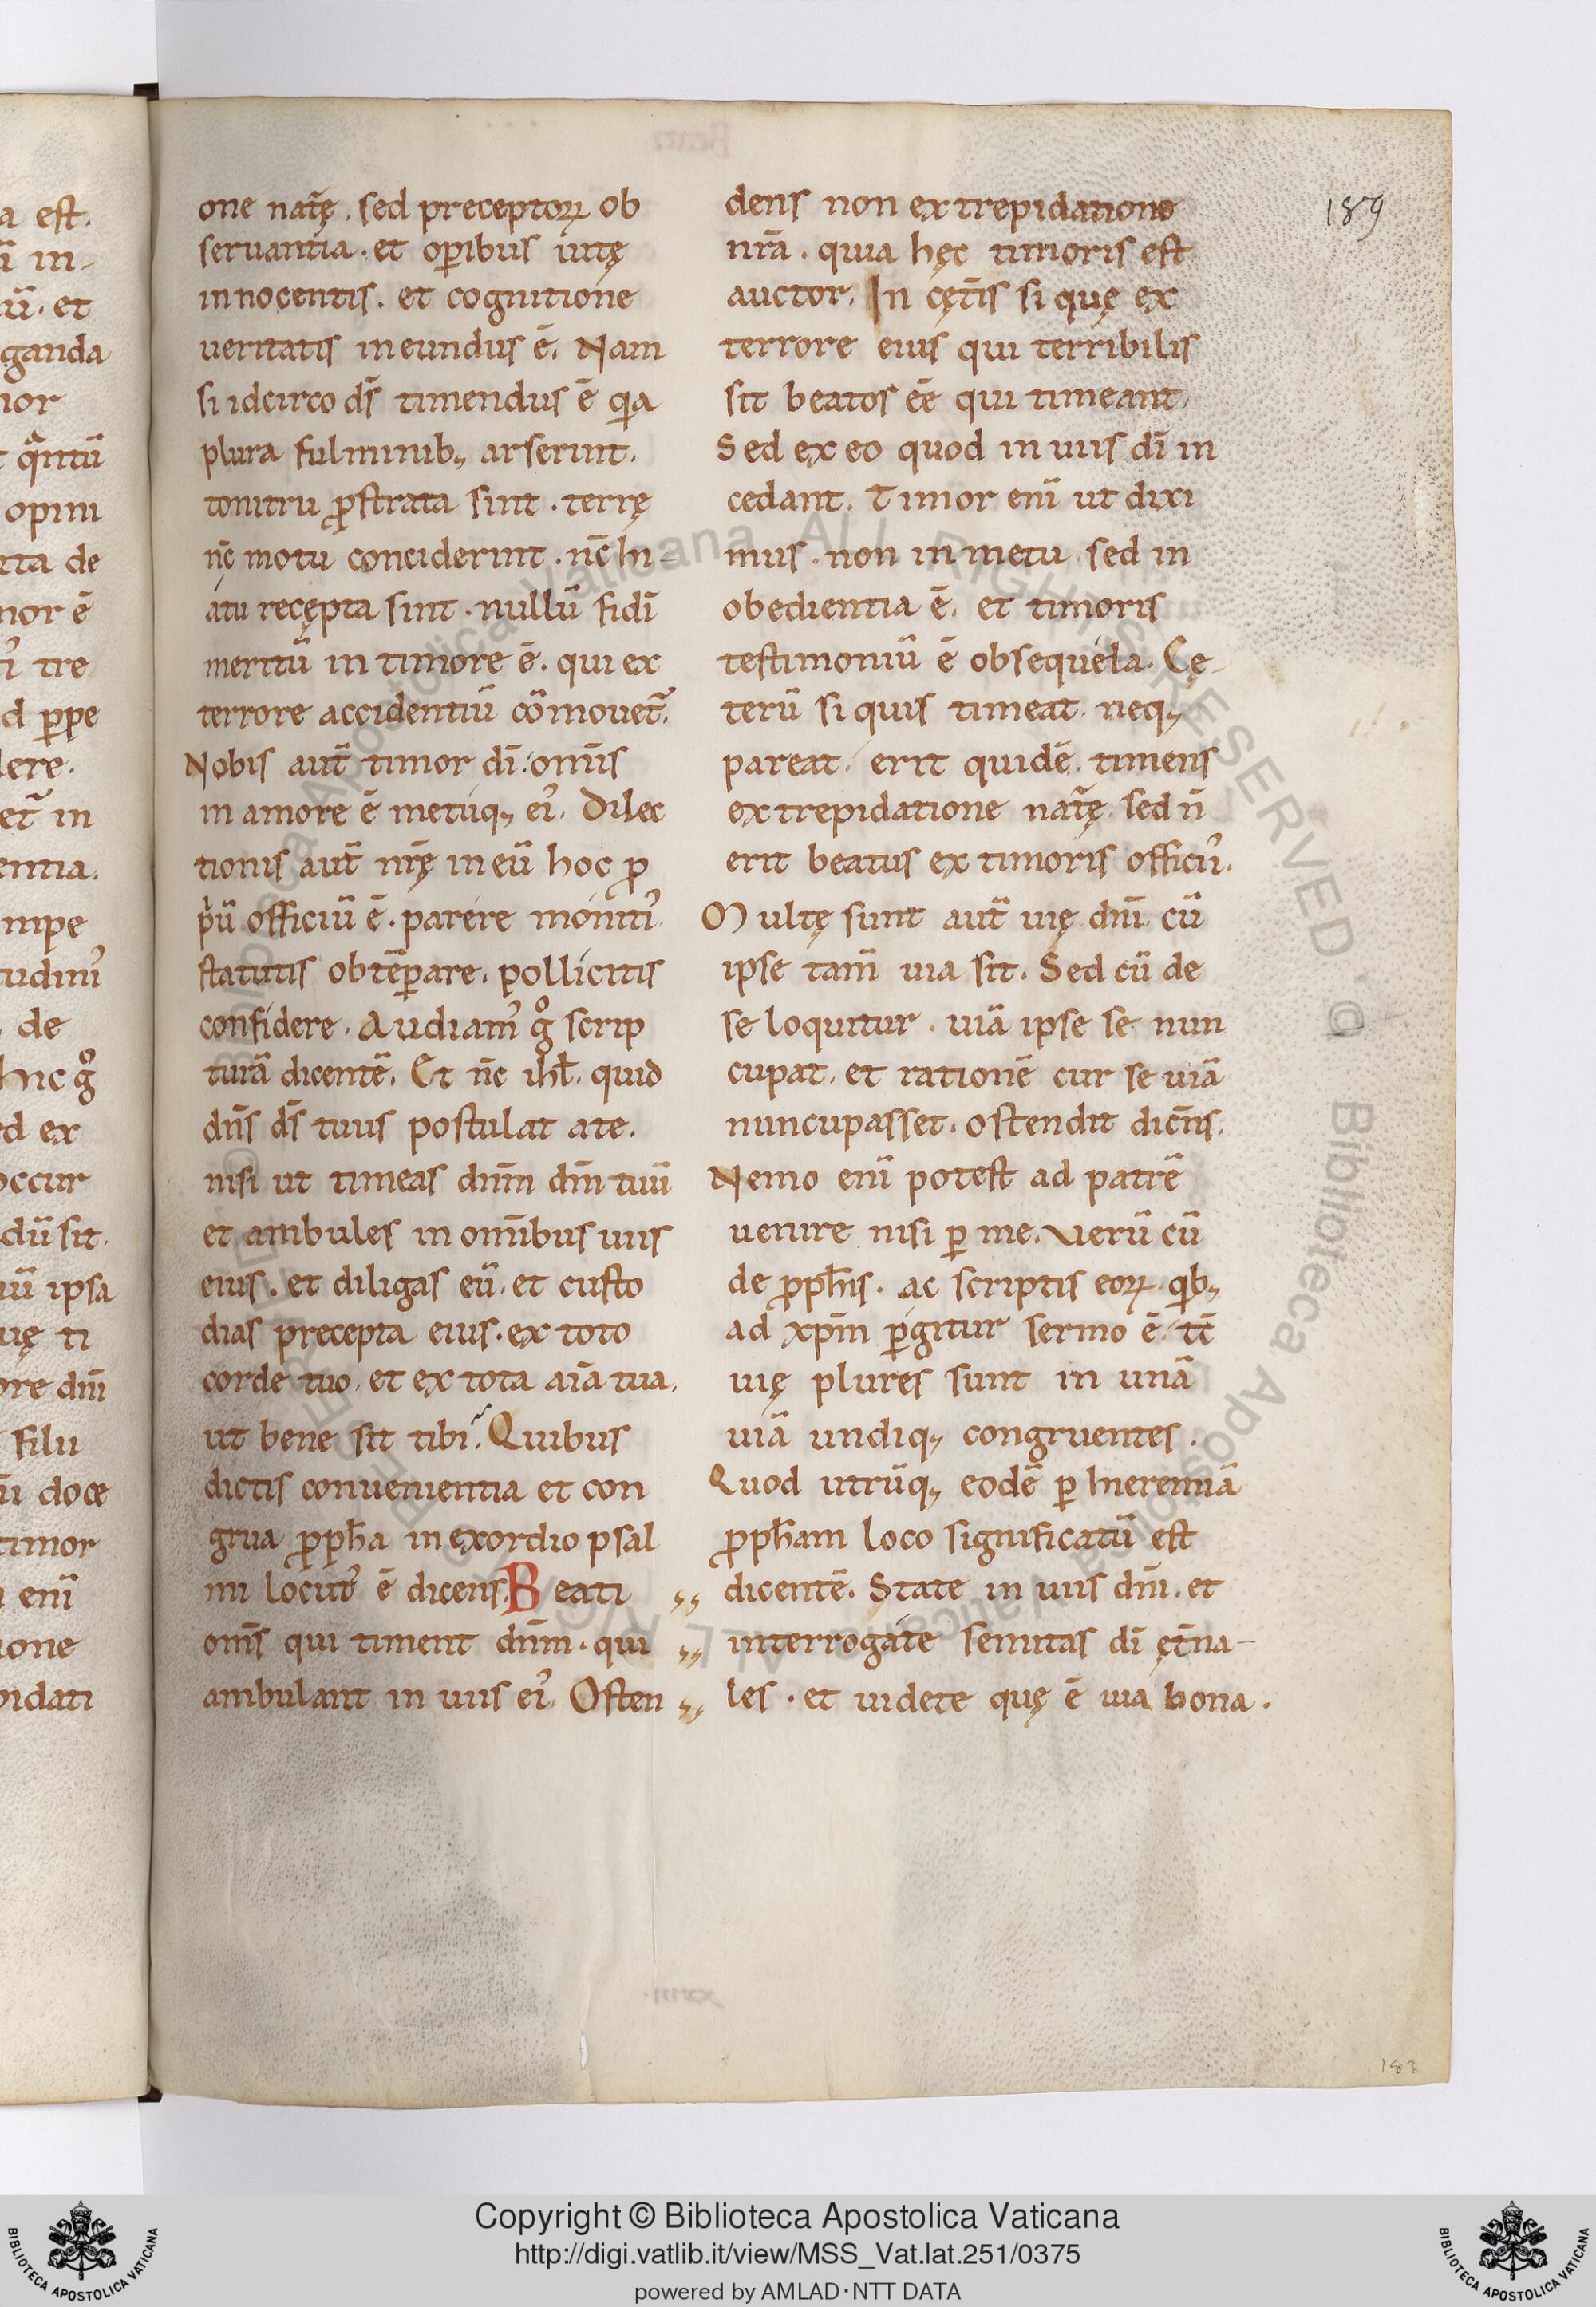 a est.
ā in-
ū. et
ganda
ior
t qͣntū
opini
ita de
mor ē
tre
d ꝑpe
lere.
et᷑ in
entia.
mpe
tudinꝰ
de
hic gͦ
d ex
occur
dū sit.
ū ipsa
uę ti
ore dn̄i
filii
doce
timor
eni̅
ione
pidati
one nat᷑ę. sed preceptoꝝ ob
seruantia. et oꝑibus uitę
innocentis. et cognitione
ueritatis ineundus ē. Nam
si idcirco ds̄ timendus ē qͥa
plura fulminib; arserint.
tonitru ꝓstrata sint. terrę
nc̄ motu conciderint. nc̄ hi-
atu recępta sint. nullū fidi̅
meritū in timore ē. qui ex
terrore accidentiū cōmouet᷑.
Nobis aut̄ timor di̅. om̅is
in amore ē metuq; eiꝰ. Dilec
tionis aut̄ nr̄ę in eū hoc ꝓ
pͥū officiū ē. parere monitiꝰ.
statutis obtēꝑare. pollicitis
confidere. Audiamꝰ gͦ scrip
turā dicentē. Et nc̄ ihl̄. quid
dn̄s ds̄ tuus postulat a te.
nisi ut timeas dn̄m dm̄ tuū
et ambules in om̅ibus uiis
eius. et diligas eū. et custo
dias precepta eius. ex toto
corde tuo. et ex tota aīa tua.
ut bene sit tibi. Quibus
dictis conuenientia et con
grua ꝓph̅a in exordio psal
mi locutꝰ ē dicens. Beati
om̅s qui timent dn̄m. qui
ambulant in uiis eiꝰ. Osten
dens non ex trepidatione
nr̄a. quia hęc timoris est
auctor. In cęt̄is si quę ex
terrore eius qui terribilis
sit beatos ēē qui timeant.
Sed ex eo quod in uiis di̅ in
cedant. Timor eni̅ ut dixi
mus. non in metu sed in
obedientia ē. et timoris
testimoniū ē obsequela. Cę-
terū si quis timeat neq;
pareat. erit quidē. timens
ex trepidatione nat᷑ę. sed n̄
erit beatus ex timoris officiꝰ.
Multę sunt aut̄ uię dn̄i cū
ipse tam̄ uia sit. Sed cū de
se loquitur. uiā ipse se nun
cupat. et rationē cur se uiā
nuncupasset. ostendit dicn̄s.
Nemo eni̅ potest ad patrē
uenire nisi ꝑ me. Verū cū
de ꝓph̅is. ac scriptis eoꝝ qͥb;
ad xp̄m ꝑgitur sermo ē. tc̄
uię plures sunt in unā
uiā undiq; congruentes.
Quod utrūq; eodē ꝑ hieremiā
ꝓph̅am loco significatū est
dicentē. State in uiis dn̄i. et
interrogate semitas di̅ ęt̄na-
les. et uidete quę ē uia bona.
189
183
xxiii
Copyright © Biblioteca Apostolica Vaticana
http://digi.vatlib.it/view/MSS_Vat.lat.251/0375
powered by AMLAD·NTT DATA
BIBLIOTECA APOSTOLICA VATICANA
BIBLIOTECA APOSTOLICA VATICANA